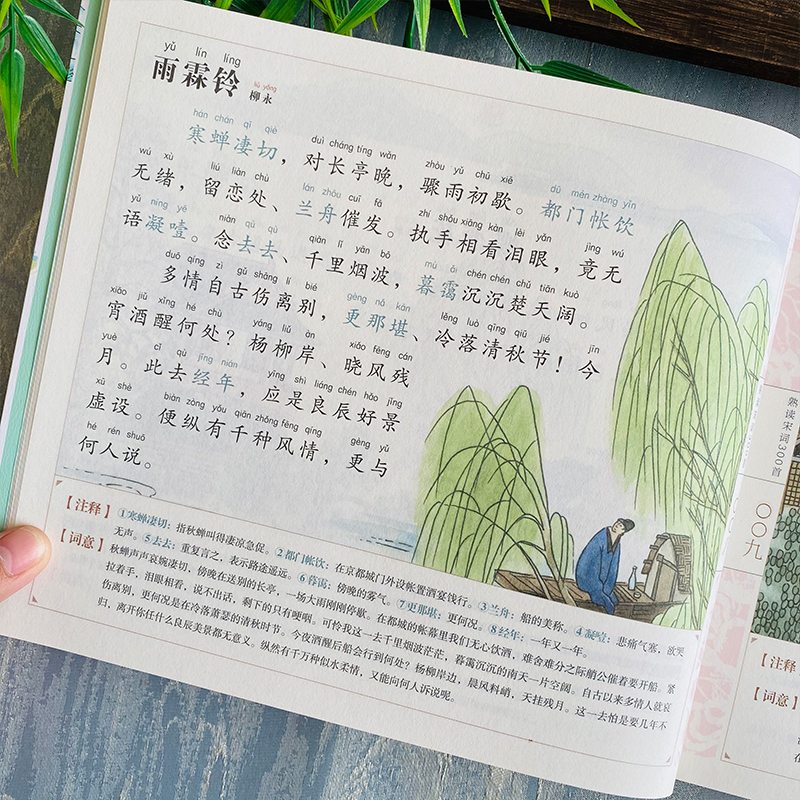 yǔ lín líng
雨霖铃
liǔ yǒng
柳永
hán chán qī qiè duì cháng tíng wǎn zhòu yǔ chū xiē dū mén zhàng yǐn
寒蝉凄切，对长亭晚，骤雨初歇。都门帐饮
wú xù liú liàn chù lán zhōu cuī fā zhí shǒu xiāng kàn lèi yǎn jìng wú
无绪，留恋处、兰舟催发。执手相看泪眼，竟无
yǔ níng yē niàn qù qù qiān lǐ yān bō mù ǎi chén chén chǔ tiān kuò
语凝噎。念去去、千里烟波，暮霭沉沉楚天阔。
duō qíng zì gǔ shāng lí bié gèng nǎ kān lěng luò qīng qiū jié jīn
多情自古伤离别，更那堪、冷落清秋节！今
xiāo jiǔ xǐng hé chù yáng liǔ àn xiǎo fēng cán
宵酒醒何处？杨柳岸、晓风残
yuè cǐ qù jīng nián yīng shì liáng chén hǎo jǐng
月。此去经年，应是良辰好景
xū shè biàn zòng yǒu qiān zhǒng fēng qíng gèng yǔ
虚设。便纵有千种风情，更与
hé rén shuō
何人说。
【注释】①寒蝉凄切：指秋蝉叫得凄凉急促。②都门帐饮：在京都城门外设帐置酒宴饯行。③兰舟：船的美称。④凝噎：悲痛气塞，欲哭
无声。⑤去去：重复言之，表示路途遥远。⑥暮霭：傍晚的雾气。⑦更那堪：更何况。⑧经年：一年又一年。
【词意】秋蝉声声哀婉凄切，傍晚在送别的长亭，一场大雨刚刚停歇。在都城的帐幕里我们无心饮酒，难舍难分之际艄公催着要开船。紧
拉着手，泪眼相看，说不出话，剩下的只有哽咽。可怜我这一去千里烟波茫茫，暮霭沉沉的南天一片空阔。自古以来多情人就哀
伤离别，更何况是在冷落萧瑟的清秋时节。今夜酒醒后船会行到何处？杨柳岸边，晨风料峭，天挂残月。这一去怕是要几年不
归，离开你任什么良辰美景都无意义。纵然有千万种似水柔情，又能向何人诉说呢。
熟读宋词300首
〇〇九
【注释】
【词意】